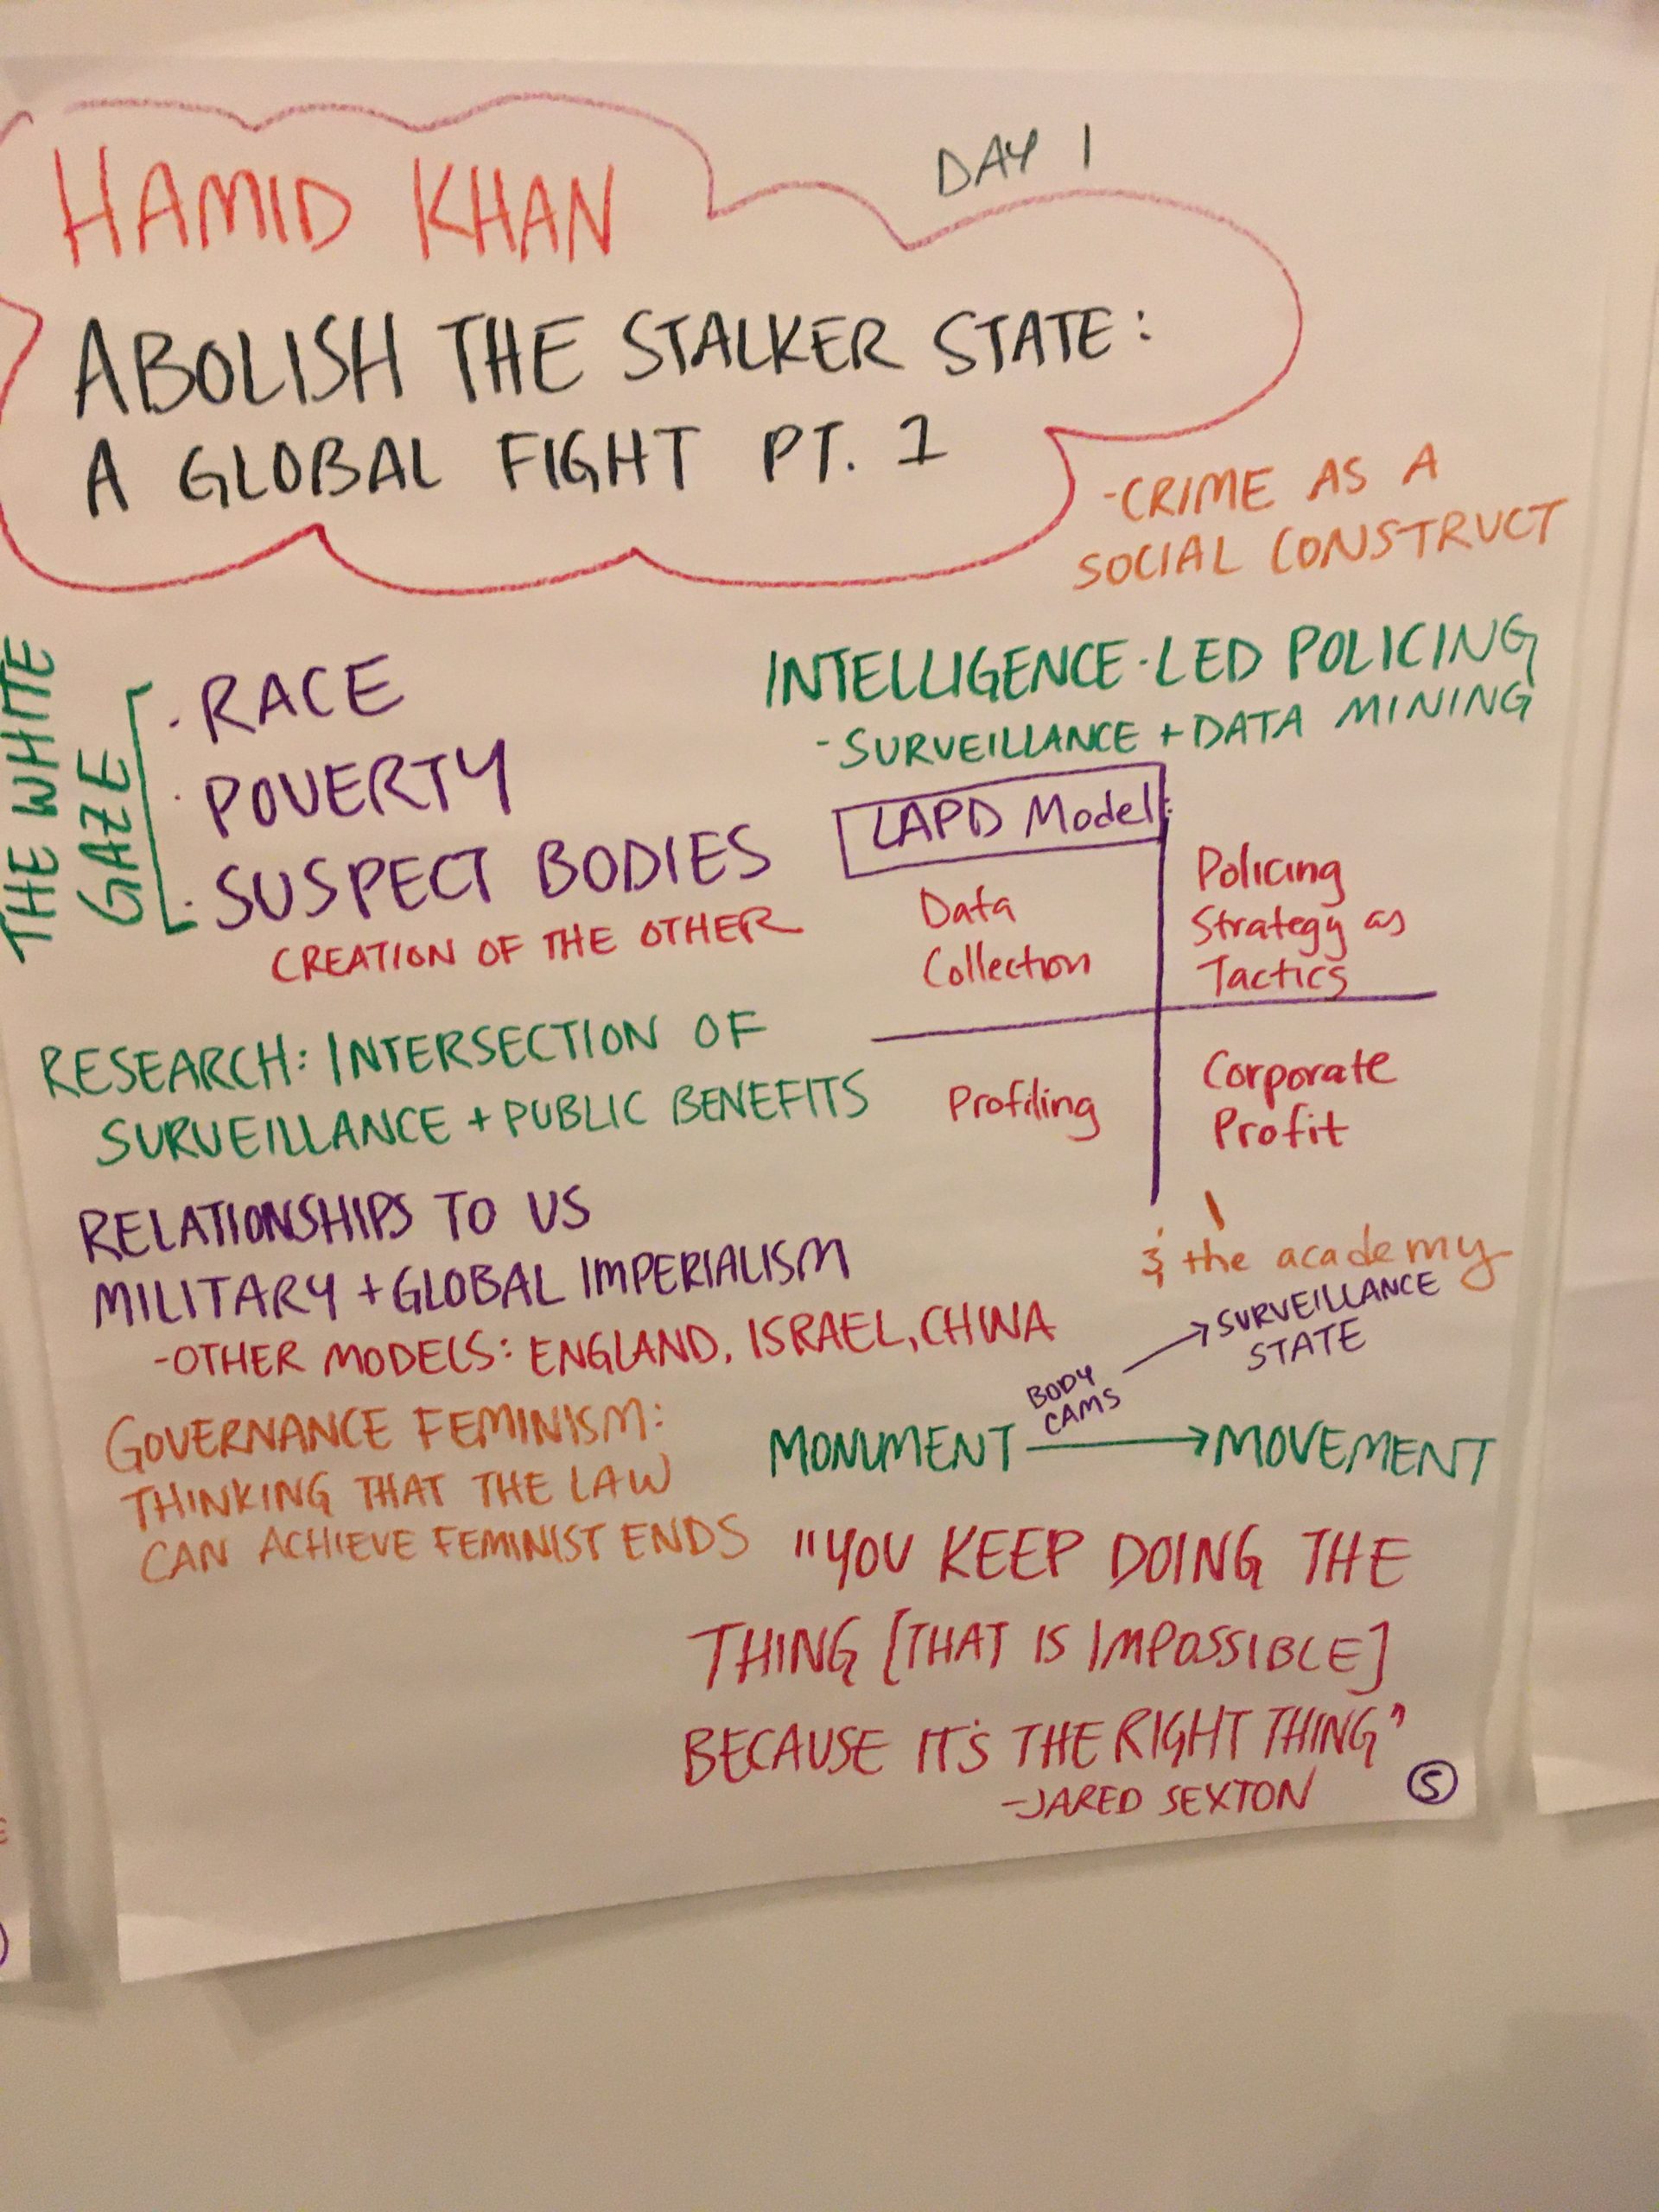 DAY 1
HAMID KHAN
ABOLISH THE STALKER STATE:
A GLOBAL FIGHT PT. 1
-CRIME AS A
SOCIAL CONSTRUCT
THE WHITE
GAZE
· RACE
· POVERTY
· SUSPECT BODIES
CREATION OF THE OTHER
INTELLIGENCE-LED POLICING
- SURVEILLANCE + DATA MINING
LAPD Model:
Data
Collection
Policing
Strategy as
Tactics
Profiling
Corporate
Profit
& the academy
RESEARCH: INTERSECTION OF
SURVEILLANCE + PUBLIC BENEFITS
RELATIONSHIPS TO US
MILITARY + GLOBAL IMPERIALISM
-OTHER MODELS: ENGLAND, ISRAEL, CHINA
GOVERNANCE FEMINISM:
THINKING THAT THE LAW
CAN ACHIEVE FEMINIST ENDS
BODY
CAMS
→ SURVEILLANCE
STATE
MONUMENT → MOVEMENT
"YOU KEEP DOING THE
THING [THAT IS IMPOSSIBLE]
BECAUSE IT'S THE RIGHT THING"
-JARED SEXTON
5